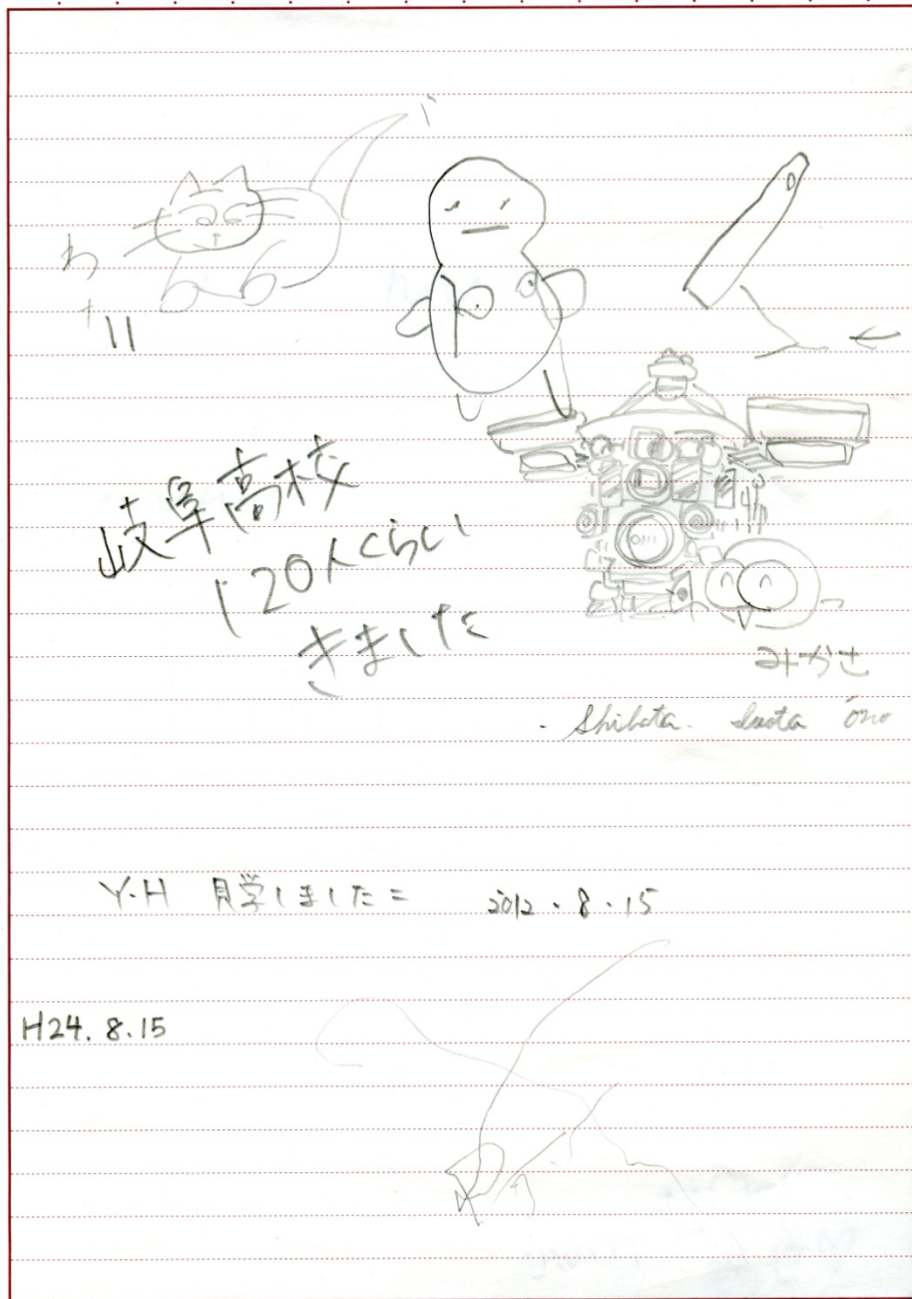 岐阜高校
120人くらい
きました
みかさ
Shibata.
Y.H 見学しました
2012.8.15
H24.8.15